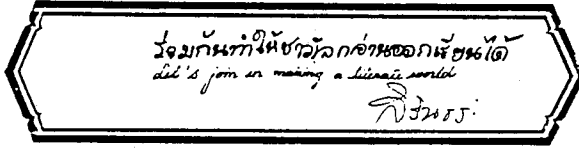 ร่วมกันทำให้ชาวโลกอ่านออกเขียนได้
Let's join in making a literate world
สิรินธร